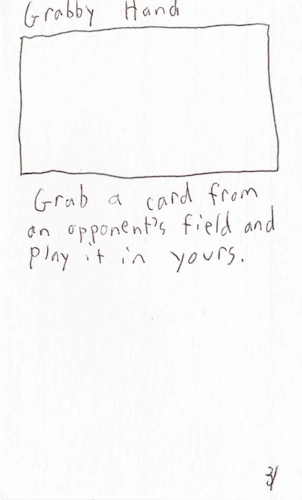 Grabby Hand
Grab a card from
an opponent's field and
play it in yours.